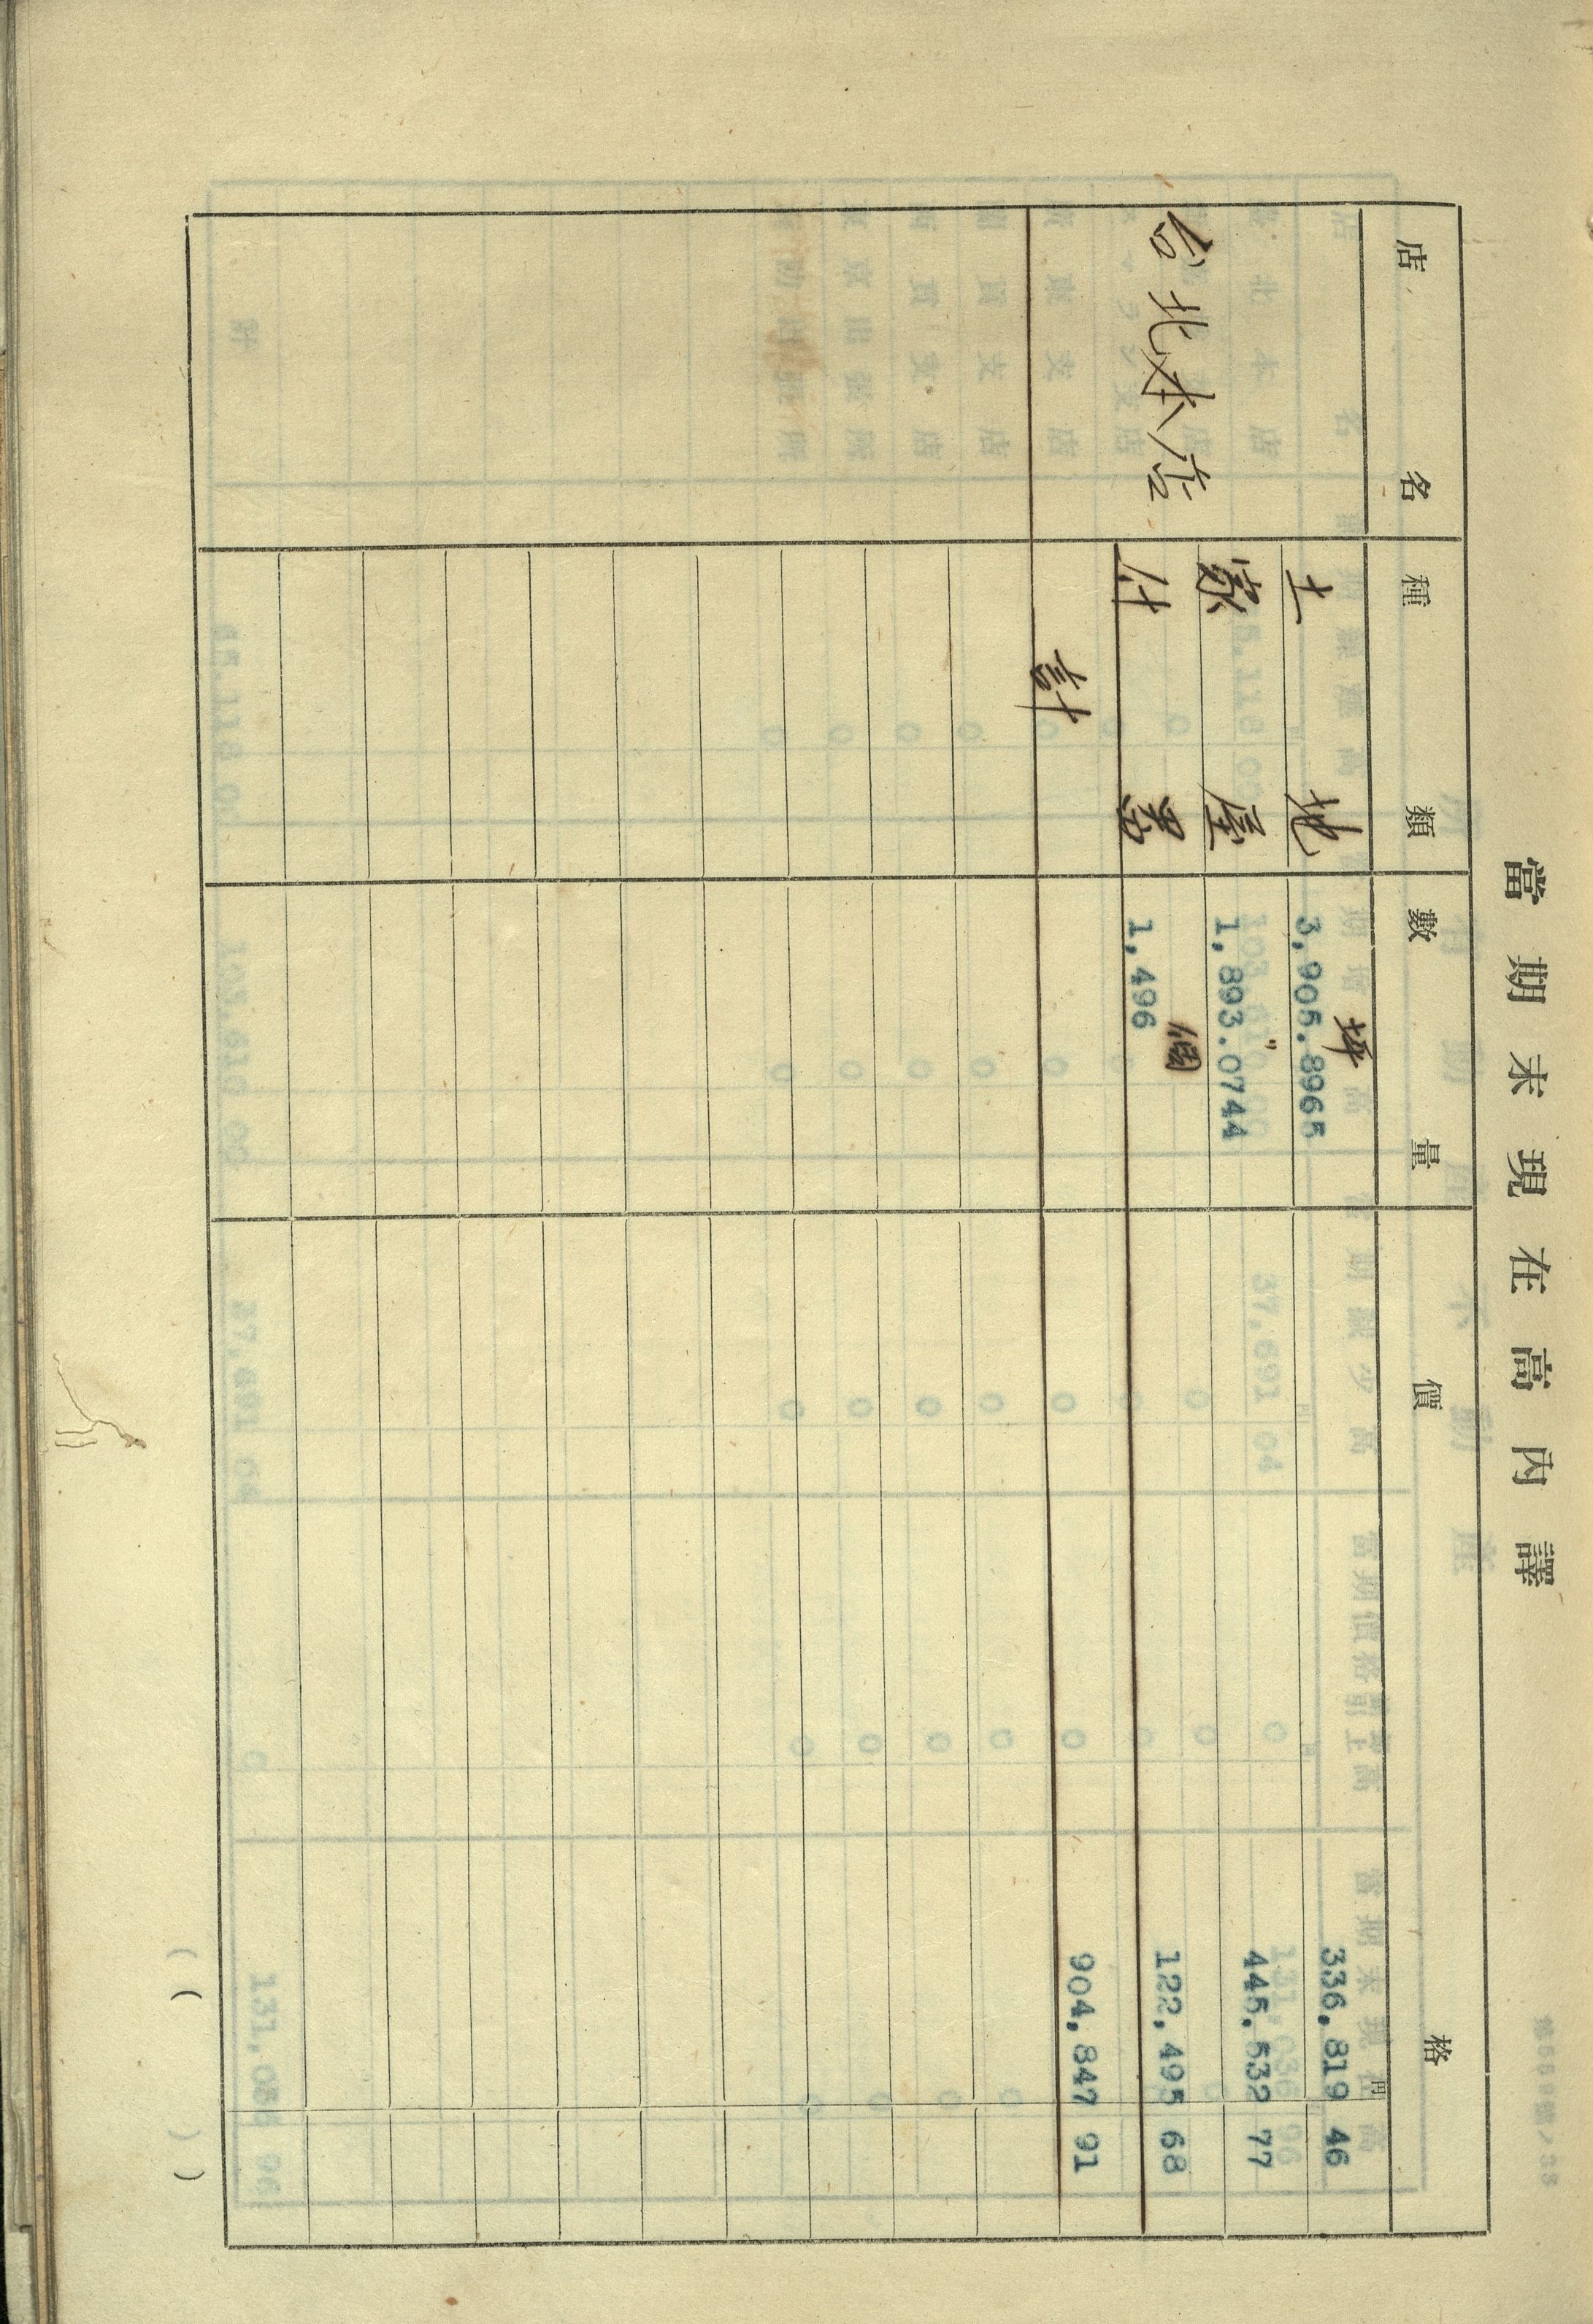 當期末現在高內譯
店名 種類 數量 價格
台北本店 土地 3,905.8965坪 336,819円46
家屋 1,893.0744〃 445,532 77
什器 1,496個 122,495 68
計 904,847 91
( )